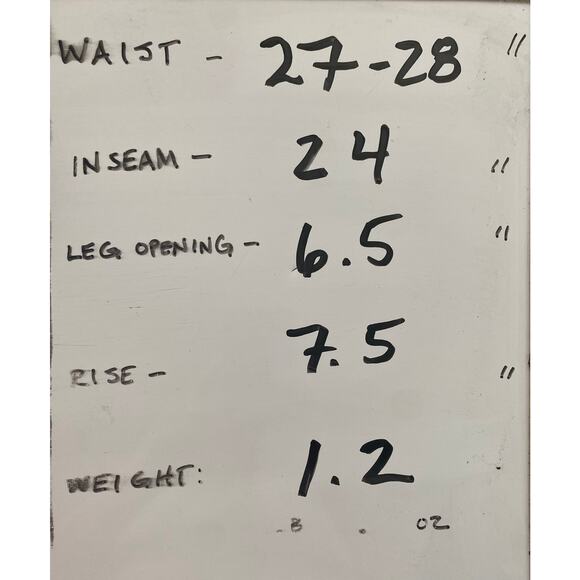 WAIST - 27-28 "
INSEAM - 24 "
LEG OPENING - 6.5 "
RISE - 7.5 "
WEIGHT: 1.2
. OZ